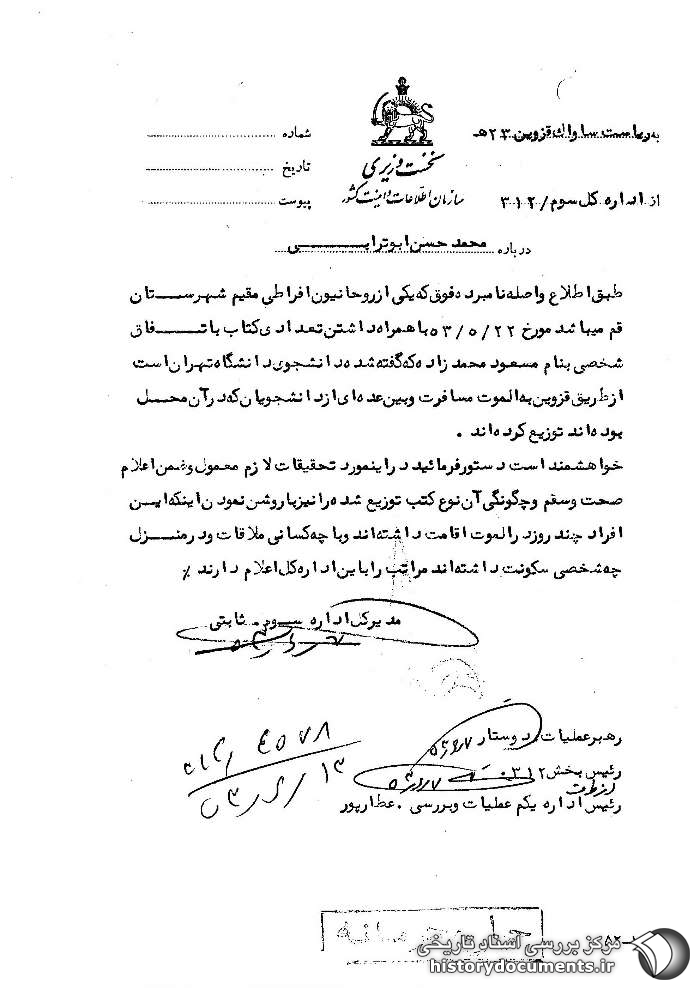 به ریاست ساواك قزوین ۲۳ هـ
از اداره كل سوم / ۳۱۲
نخست وزیری
سازمان اطلاعات و امنیت کشور
شماره
تاریخ
پیوست
درباره محمد حسن ابوترابی
طبق اطلاع واصله نامبرده فوق که یکی از روحانیون افراطی مقیم شهرستان
قم میباشد مورخ ۵۳/۵/۲۲ با همراه داشتن تعدادی کتاب باتفاق
شخصی بنام مسعود محمد زاده که گفته شده دانشجوی دانشگاه تهران است
از طریق قزوین به الموت مسافرت و بین عده ای از دانشجویان که در آن محل
بوده اند توزیع کرده اند .
خواهشمند است دستور فرمائید در اینمورد تحقیقات لازم معمول و ضمن اعلام
صحت و سقم و چگونگی آن نوع کتب توزیع شده را نیز با روشن نمودن اینکه این
افراد چند روز در الموت اقامت داشته اند و با چه کسانی ملاقات و در منزل
چه شخصی سکونت داشته اند مراتب را باین اداره کل اعلام دارند ٪
مدیر کل اداره سوم . ثابتی
رهبر عملیات . دوستار
رئیس بخش ۳۱۲
از طرف
رئیس اداره یکم عملیات و بررسی . عطارپور
۳۱۲/۴۵۷۸
۵۳/۶/۱۳
خیلی محرمانه
مرکز بررسی اسناد تاریخی
historydocuments.ir